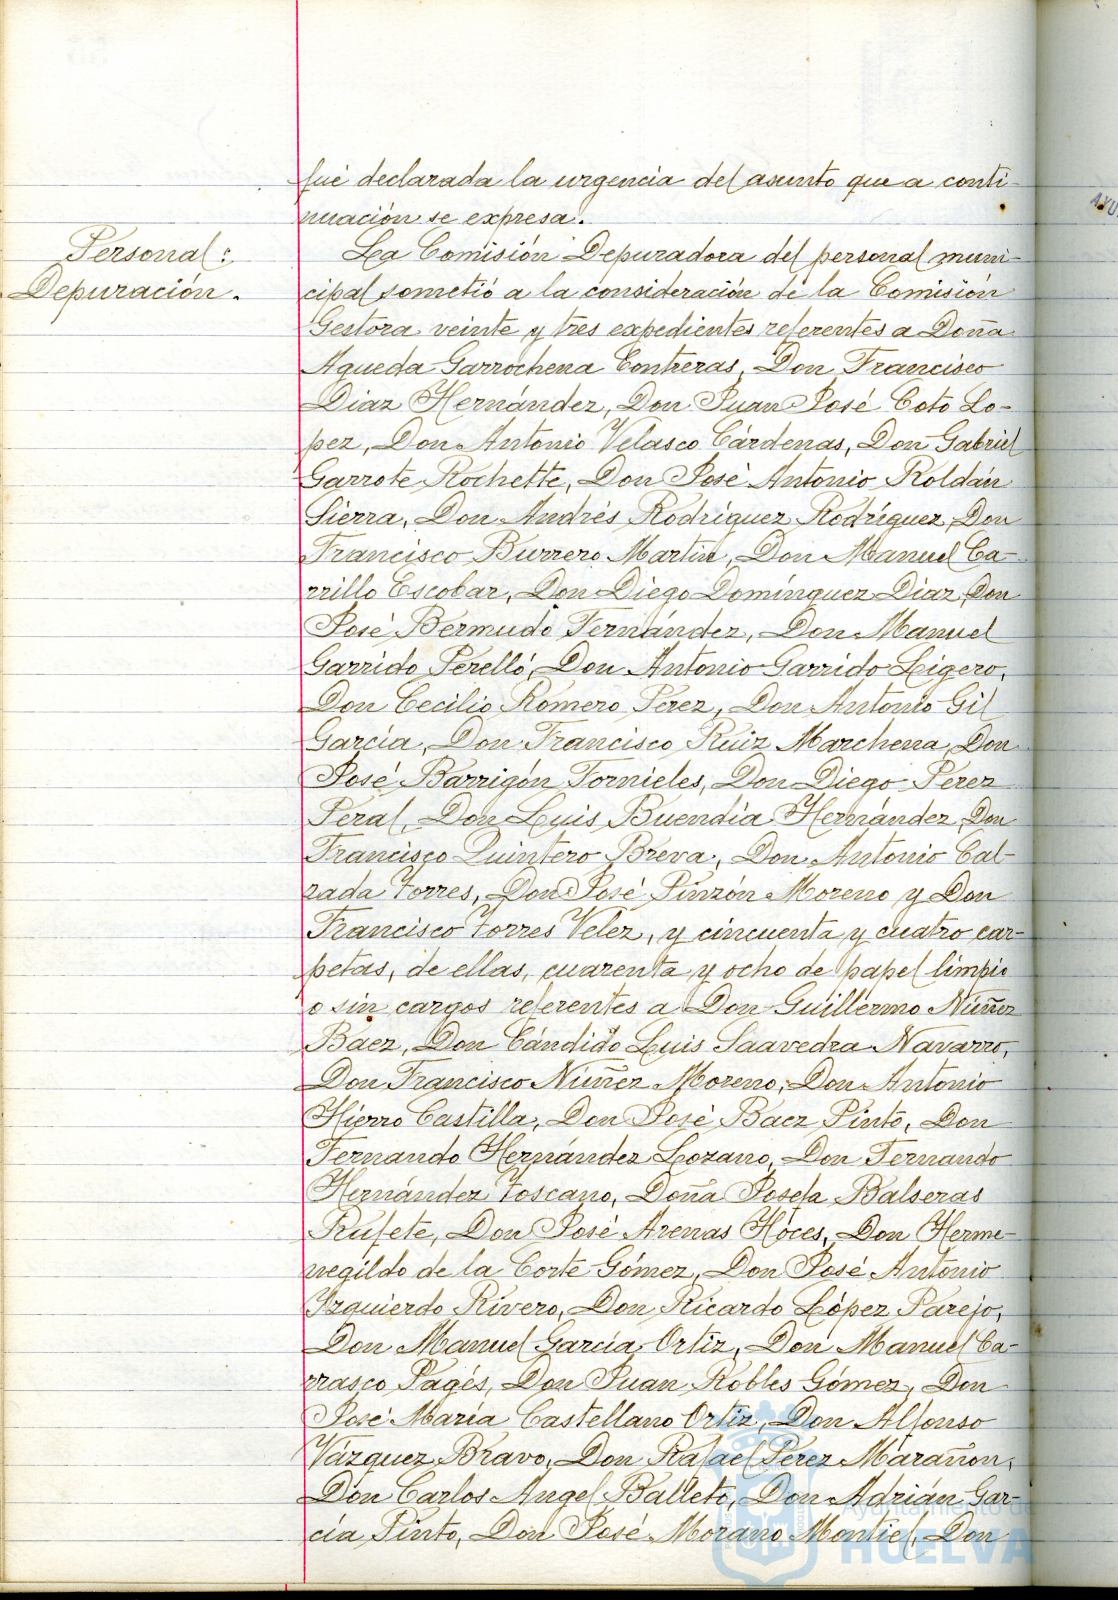 fué declarada la urgencia del asunto que a conti-
nuación se expresa.
Personal:
Depuración.
La Comisión Depuradora del personal muni-
cipal sometió a la consideración de la Comisión
Gestora veinte y tres expedientes referentes a Doña
Agueda Garrochena Contreras, Don Francisco
Diaz Hernández, Don Juan José Coto Lo-
pez, Don Antonio Velasco Cárdenas, Don Gabriel
Garrote Rochette, Don José Antonio Roldán
Sierra, Don Andrés Rodriguez Rodríguez, Don
Francisco Burrero Martin, Don Manuel Ca-
rrillo Escobar, Don Diego Domínguez Diaz, Don
José Bermudo Fernández, Don Manuel
Garrido Perelló, Don Antonio Garrido Ligero,
Don Cecilio Romero Pérez, Don Antonio Gil
García, Don Francisco Ruiz Marchena, Don
José Barrigón Tornieles, Don Diego Perez
Peral, Don Luis Buendia Hernández, Don
Francisco Quintero Breva, Don Antonio Cal-
zada Torres, Don José Pinzón Moreno y Don
Francisco Torres Velez, y cincuenta y cuatro car-
petas, de ellas, cuarenta y ocho de papel limpio
o sin cargos referentes a Don Guillermo Núñez
Baez, Don Cándido Luis Saavedra Navarro,
Don Francisco Núñez Moreno, Don Antonio
Hierro Castilla, Don José Baez Pinto, Don
Fernando Hernández Lozano, Don Fernando
Hernández Toscano, Doña Josefa Balseras
Rufete, Don José Arenas Hoces, Don Herme-
negildo de la Corte Gómez, Don José Antonio
Izquierdo Rivero, Don Ricardo López Parejo,
Don Manuel García Ortiz, Don Manuel Ca-
rrasco Pagés, Don Juan Robles Gómez, Don
José María Castellano Ortiz, Don Alfonso
Vázquez Bravo, Don Rafael Pérez Marañon,
Don Carlos Angel Balleto, Don Adrián Gar-
cía Pinto, Don José Morano Montiel, Don
Ayuntamiento de
HUELVA